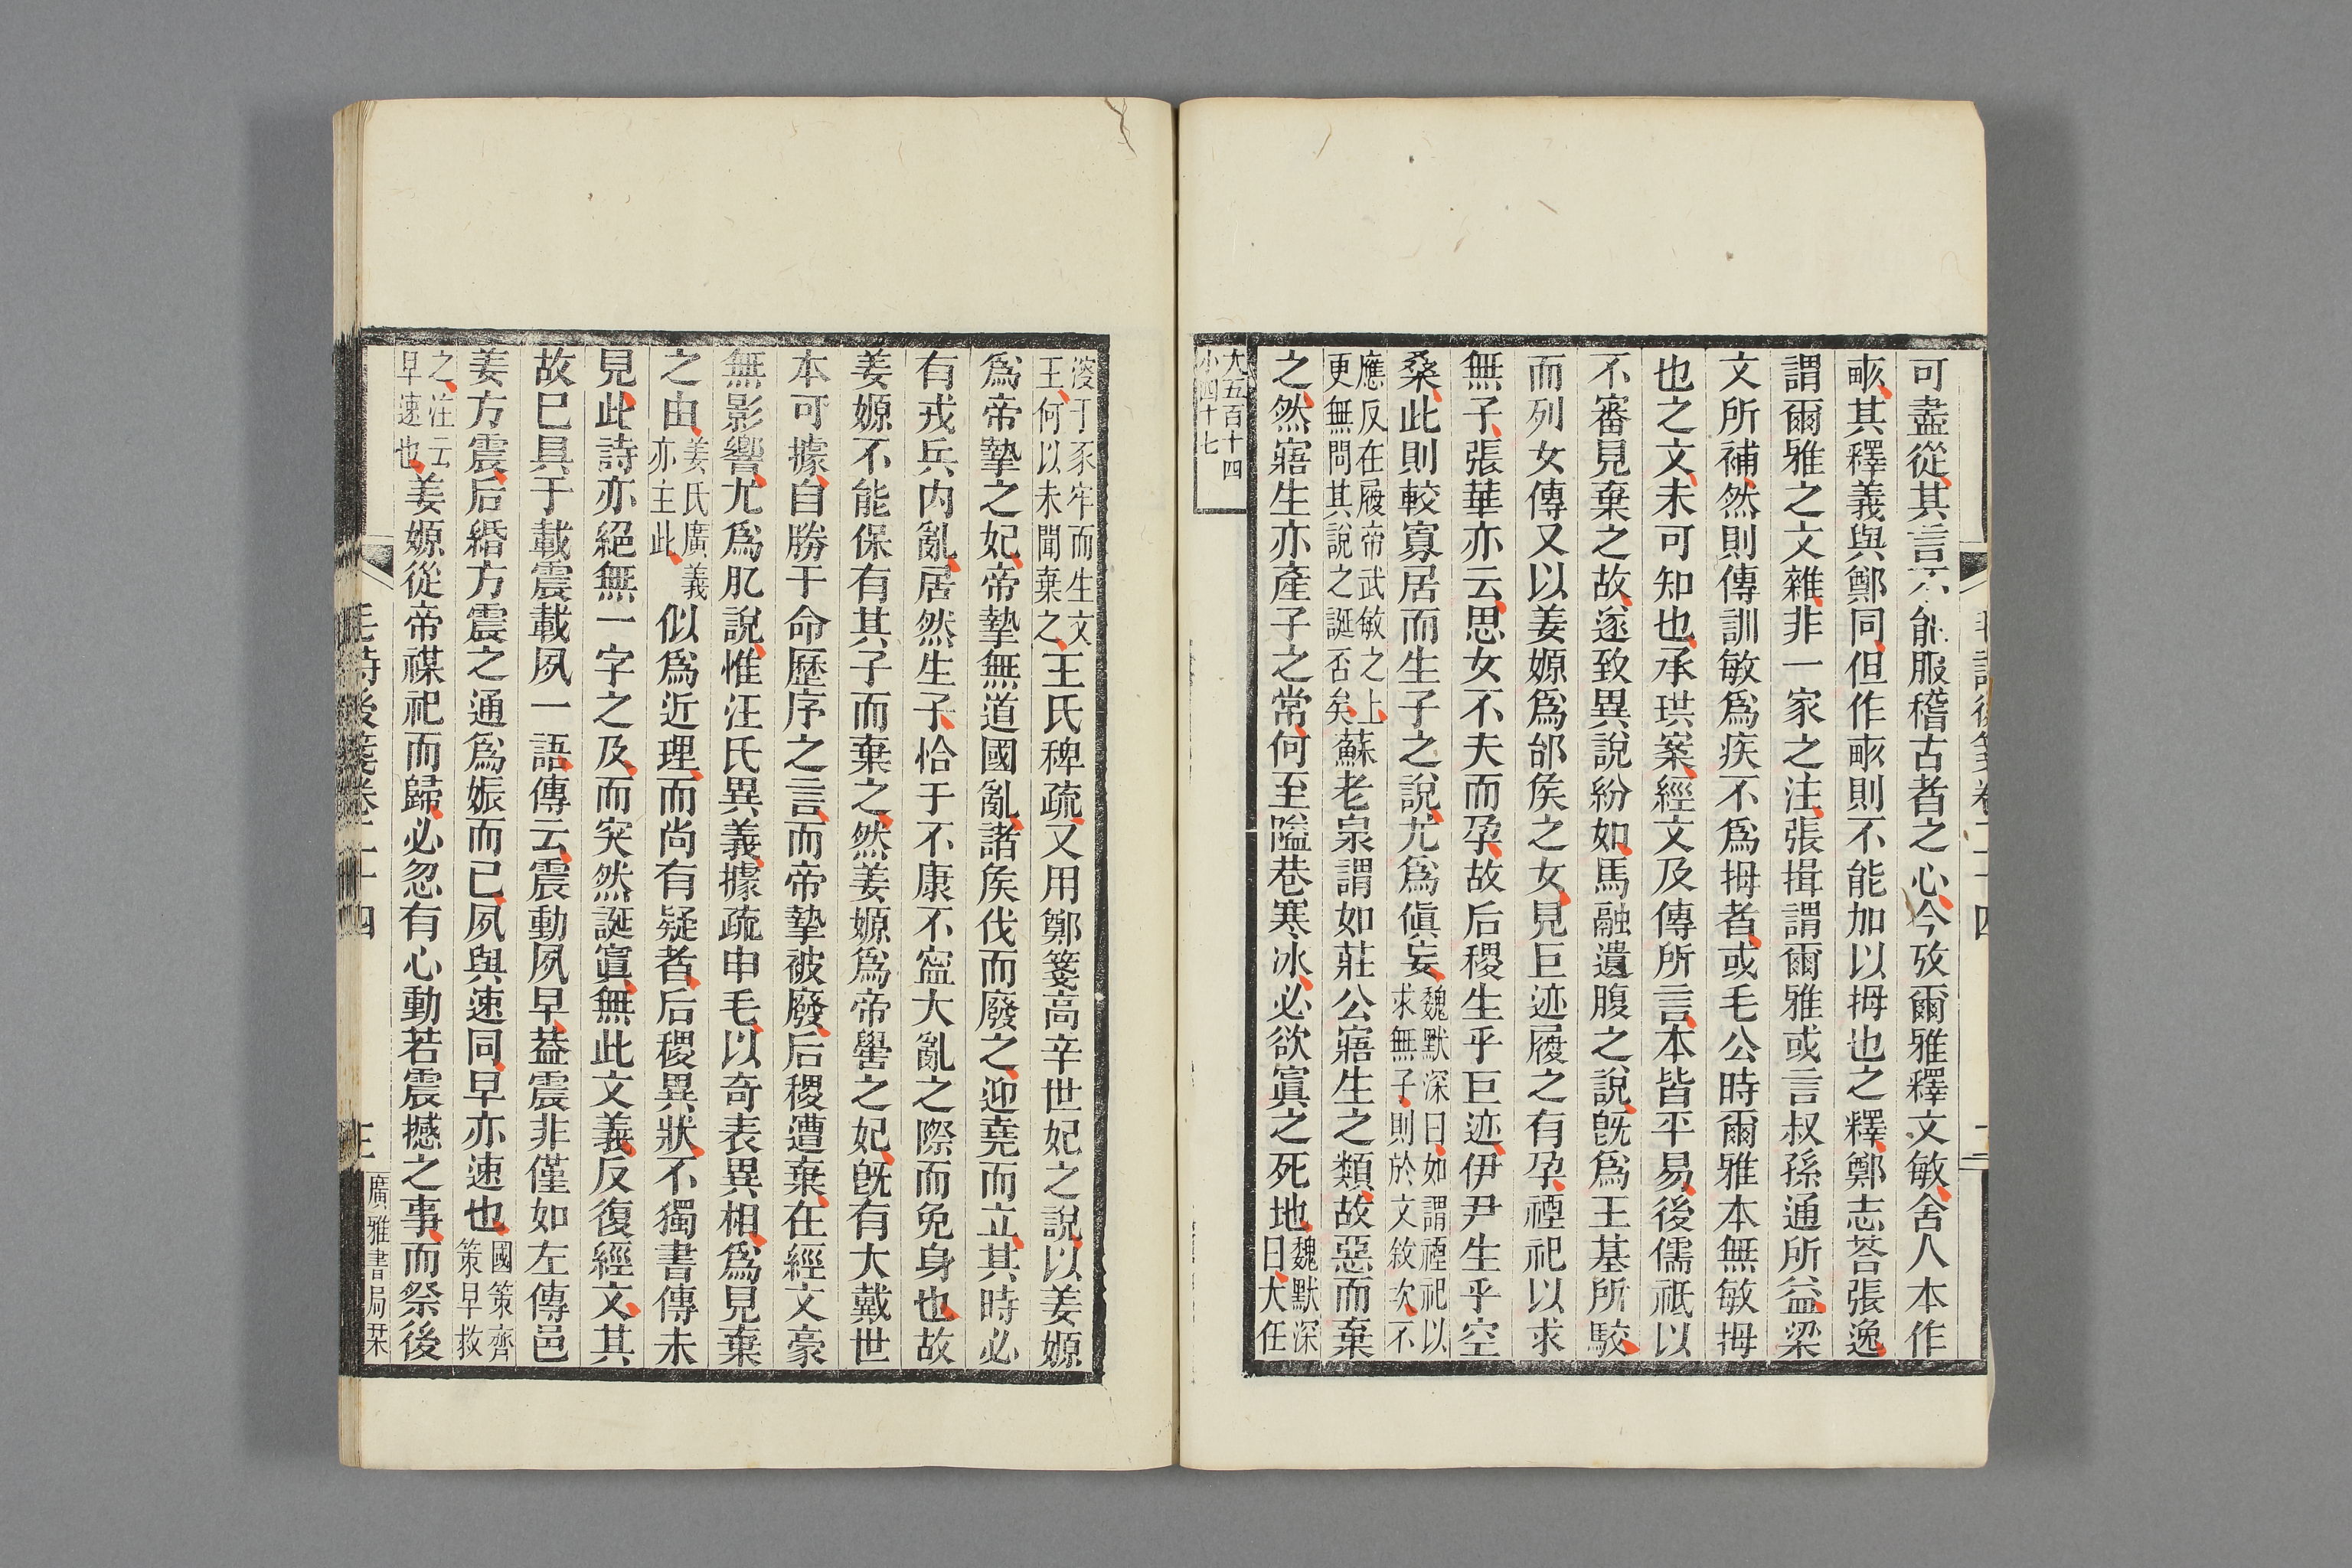 可盡從其言不能服稽古者之心今攷爾雅釋文敏舍人本作
畞其釋義與鄭同但作畞則不能加以拇也之釋鄭志荅張逸
謂爾雅之文雜非一家之注張揖謂爾雅或言叔孫通所益梁
文所補然則傳訓敏爲疾不爲拇者或毛公時爾雅本無敏拇
也之文未可知也承珙案經文及傳所言本皆平易後儒祇以
不審見棄之故遂致異說紛如馬融遺腹之說旣爲王基所駮
而列女傳又以姜嫄爲邰矦之女見巨迹履之有孕禋祀以求
無子張華亦云思女不夫而孕故后稷生乎巨迹伊尹生乎空
桑此則較寡居而生子之說尤爲傎妄魏默深曰如謂禋祀以
求無子則於文敘次不
應反在履帝武敏之上
更無問其說之誕否矣蘇老泉謂如莊公寤生之類故惡而棄
之然寤生亦產子之常何至隘巷寒冰必欲窴之死地魏默深
曰大任
大五百十四
小四十七
毛詩後箋卷二十四
二
溲于豕牢而生文
王何以未聞棄之王氏稗疏又用鄭箋高辛世妃之說以姜嫄
爲帝摯之妃帝摯無道國亂諸矦伐而廢之迎堯而立其時必
有戎兵內亂居然生子恰于不康不寍大亂之際而免身也故
姜嫄不能保有其子而棄之然姜嫄爲帝嚳之妃旣有大戴世
本可據自勝于命歷序之言而帝摯被廢后稷遭棄在經文豪
無影響尤爲肊說惟汪氏異義據疏申毛以奇表異相爲見棄
之由姜氏廣義
亦主此似爲近理而尚有疑者后稷異狀不獨書傳未
見此詩亦絕無一字之及而突然誕窴無此文義反復經文其
故已具于載震載夙一語傳云震動夙早葢震非僅如左傳邑
姜方震后緡方震之通爲娠而已夙與速同早亦速也國策齊
策早救
之注云
早速也姜嫄從帝禖祀而歸必忽有心動若震撼之事而祭後
毛詩後箋卷二十四
三
廣雅書局栞